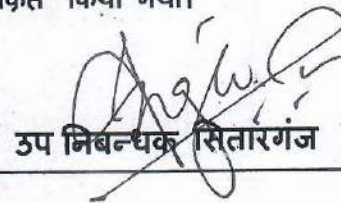 किया गया।
उप निबन्धक सितारगंज